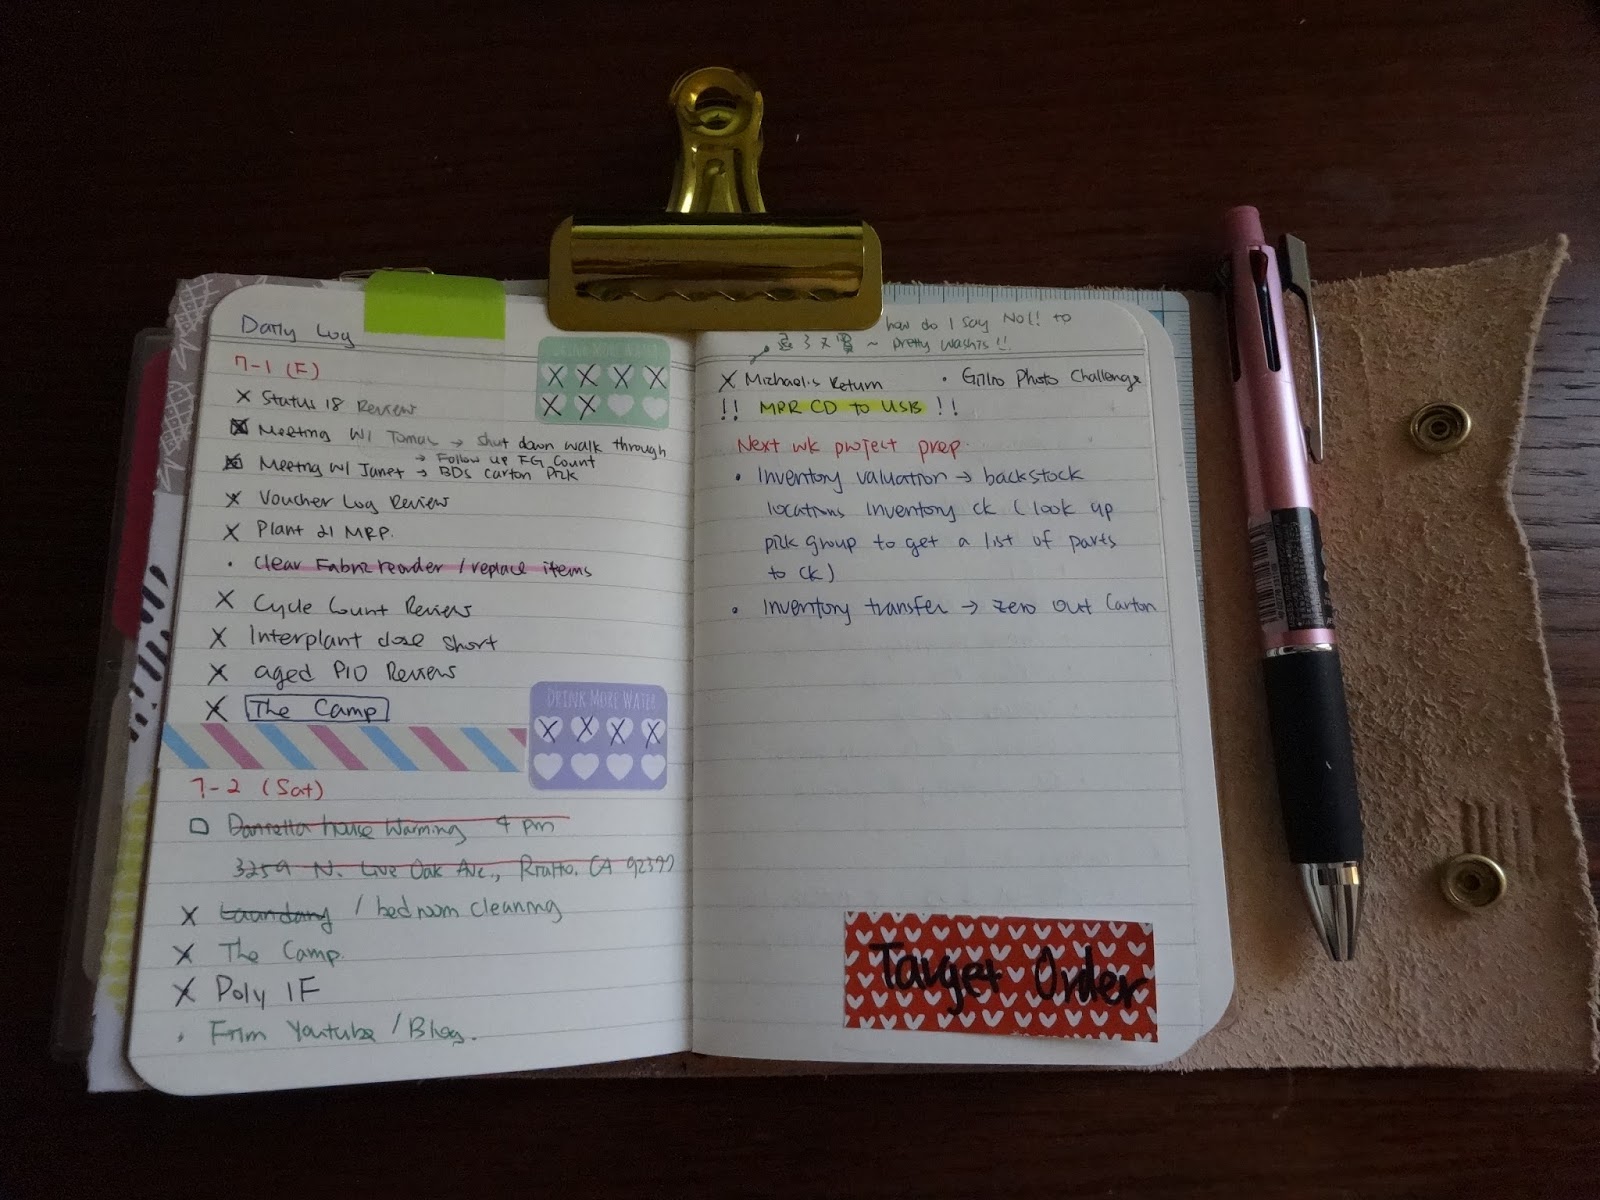 Daily Log
7-1 (F)
DRINK MORE WATER
X Status 18 Review
X Meeting W/ Tomas → Shut down walk through
→ Follow up FG Count
X Meeting W/ Janet → BDs Carton Pick
X Voucher Log Review
X Plant 21 MRP.
· Clear Fabric reorder / replace items
X Cycle Count Review
X Interplant close Short
X aged PIO Review
X The Camp
DRINK MORE WATER
7-2 (Sat)
house Warming 4 pm
3259 N. Live Oak Ave., Rialto. CA 92377
X Laundary / bedroom cleaning
X The Camp.
X Poly IF
· Film Youtube / Blog.
how do I say No!! to
~ pretty washis !!
X Michael's Return
· Photo Challenge
!! MPR CD to USB !!
Next wk project prep.
· Inventory valuation → backstock
locations Inventory ck (look up
pick group to get a list of parts
to ck)
· Inventory transfer → zero out Carton
Target Order